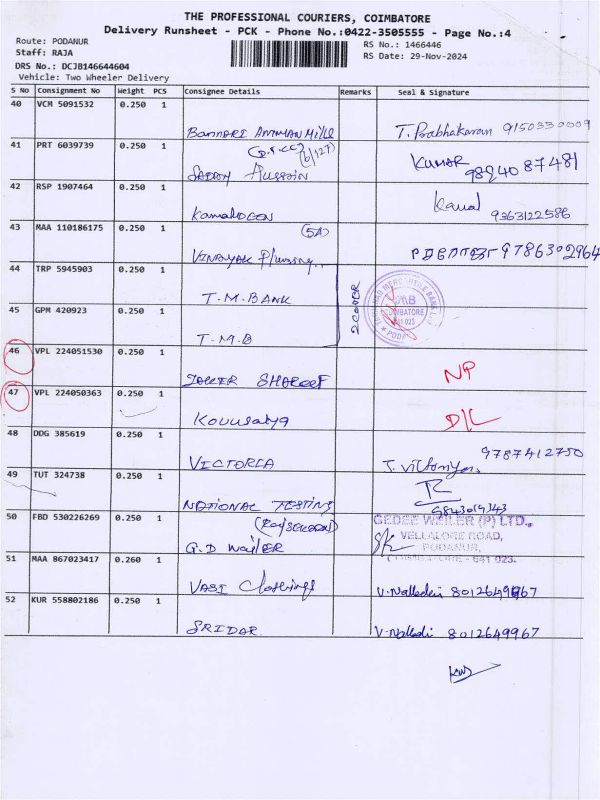 THE PROFESSIONAL COURIERS, COIMBATORE
Delivery Runsheet - PCK - Phone No.:0422-3505555 - Page No.:4
Route: PODANUR
RS No.: 1466446
Staff: RAJA
RS Date: 29-Nov-2024
DRS No.: DCJB146644604
Vehicle: Two Wheeler Delivery
S No Consignment No Weight PCS Consignee Details Remarks Seal & Signature
40 VCM 5091532 0.250 1
BANNARI AMMAN Mills T. Prabhakaran 9150330009
41 PRT 6039739 0.250 1
(b/127) KUMAR
Hussain 9894087481
42 RSP 1907464 0.250 1
Kamal
Kamaldeen 9363122586
43 MAA 110186175 0.250 1
(5A)
VINAYAK 9786302964
44 TRP 5945903 0.250 1
T.M.BANK
2 COVER
COIMBATORE
641 023
45 GPM 420923 0.250 1
T.M.B
46 VPL 224051530 0.250 1
SHAREEF NP
47 VPL 224050363 0.250 1
Kovusalya D/L
48 DDG 385619 0.250 1
9787412750
VICTORIA J. Victoriya
49 TUT 324738 0.250 1
NATIONAL TESTING
9843019343
50 FBD 530226269 0.250 1
GEDEE WEILER (P) LTD.,
VELLALORE ROAD,
G.D Weiler PODANUR,
COIMBATORE - 641 023.
51 MAA 867023417 0.260 1
VASI Clothings V. Nalladei 8012649967
52 KUR 558802186 0.250 1
SRIDAR V. Nalladi 8012649967